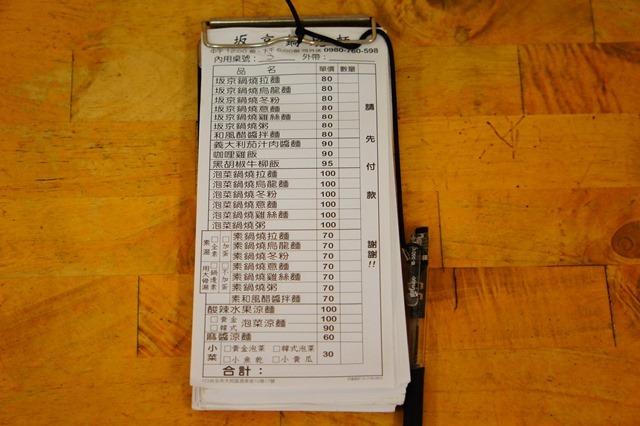 坂京鍋燒麵
0980-760-598
內用桌號: 外帶:
品名 單價 數量
坂京鍋燒拉麵 80
坂京鍋燒烏龍麵 80
坂京鍋燒冬粉 80
坂京鍋燒意麵 80
坂京鍋燒雞絲麵 80
坂京鍋燒粥 80
和風醋醬拌麵 80
義大利茄汁肉醬麵 90
咖哩雞飯 90
黑胡椒牛柳飯 95
泡菜鍋燒拉麵 100
泡菜鍋燒烏龍麵 100
泡菜鍋燒冬粉 100
泡菜鍋燒意麵 100
泡菜鍋燒雞絲麵 100
泡菜鍋燒粥 100
素鍋燒拉麵 70
素鍋燒烏龍麵 70
素鍋燒冬粉 70
素鍋燒意麵 70
素鍋燒雞絲麵 70
素鍋燒粥 70
素和風醋醬拌麵 70
素湯 □全素 □加蛋
用大骨湯 □鍋邊素 □不加蛋
酸辣水果涼麵 100
□黃金 泡菜涼麵 100
□韓式 90
麻醬涼麵 60
小菜 □黃金泡菜 □韓式泡菜 30
□小魚乾 □小黃瓜
合計:
請先付款 謝謝!!